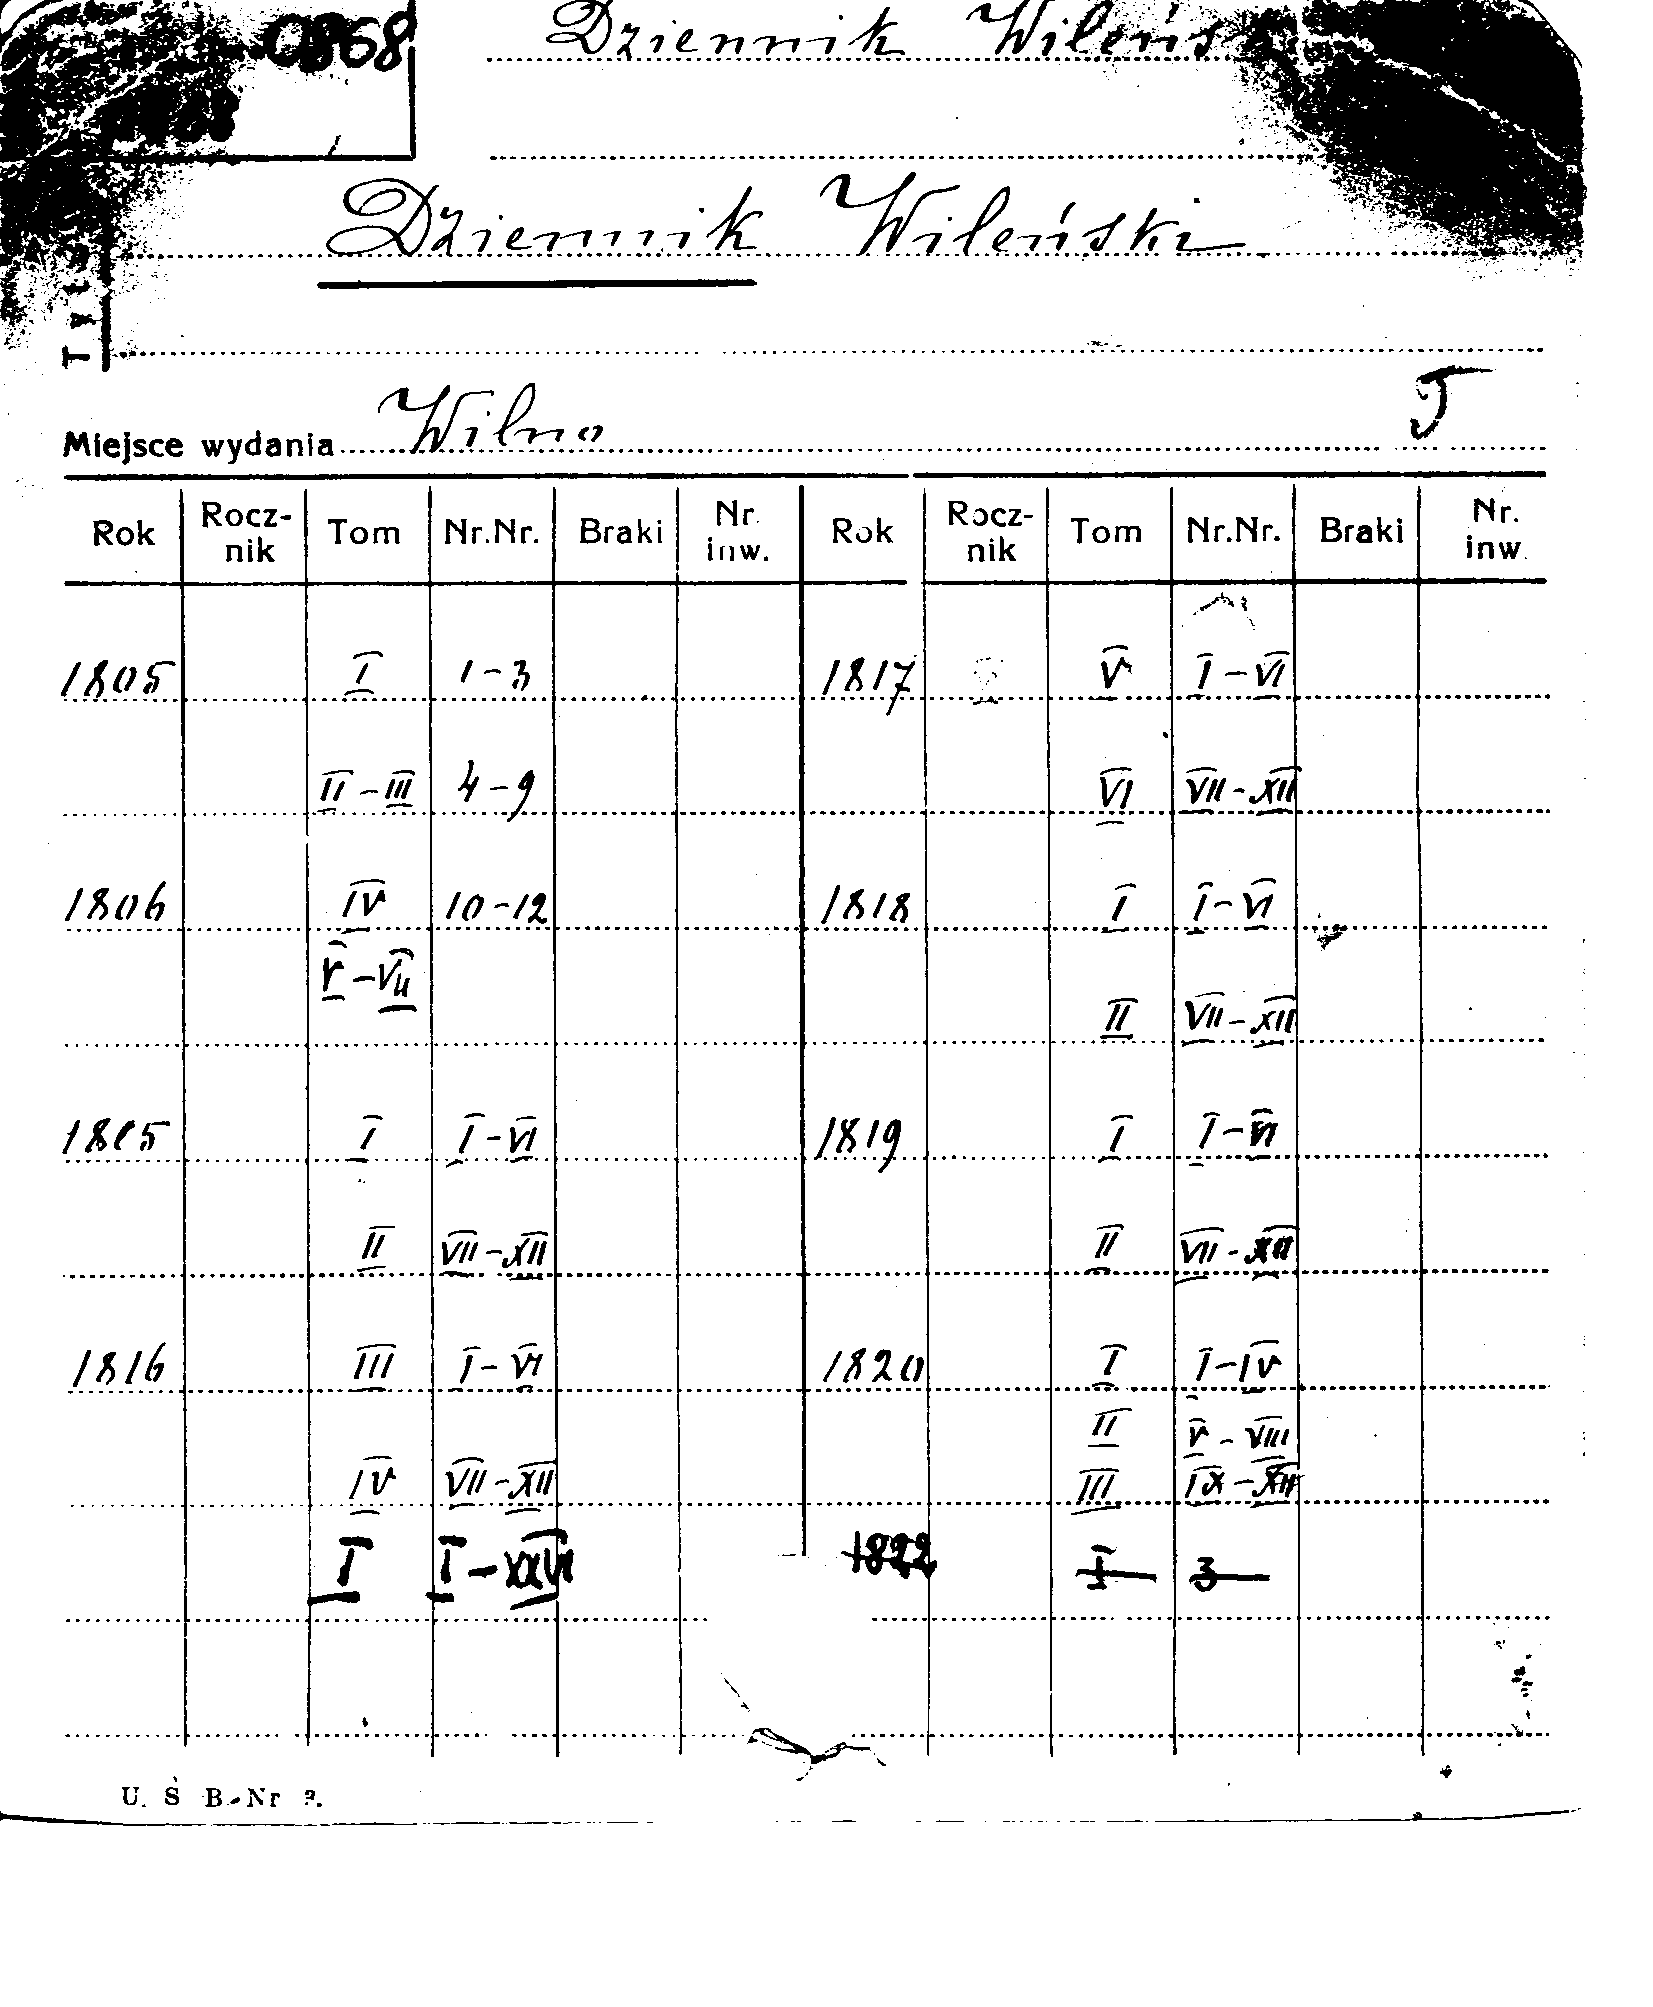 0868 Dziennik Wileńs
Dziennik Wileński
Miejsce wydania Wilno
Rok Rocz-nik Tom Nr.Nr. Braki Nr. inw. Rok Rocz-nik Tom Nr.Nr. Braki Nr. inw.
1805 I 1-3 1817 V I-VI
II-III 4-9 VI VII-XII
1806 IV 10-12 1818 I I-VI
V-VII
II VII-XII
1815 I I-VI 1819 I I-VI
II VII-XII II VII-XII
1816 III I-VI 1820 I I-IV
II V-VIII
IV VII-XII III IX-XII
I I-XXVI 1822 I 3
U. S B. Nr